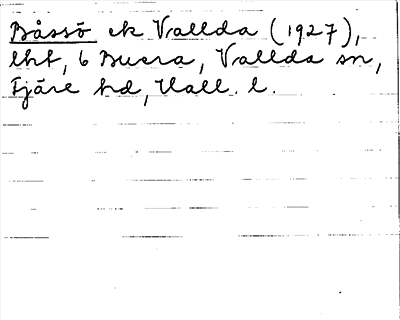 Båssö ek Vallda (1927),
lht, 6 Buera, Vallda sn,
Fjäre hd, Hall. l.